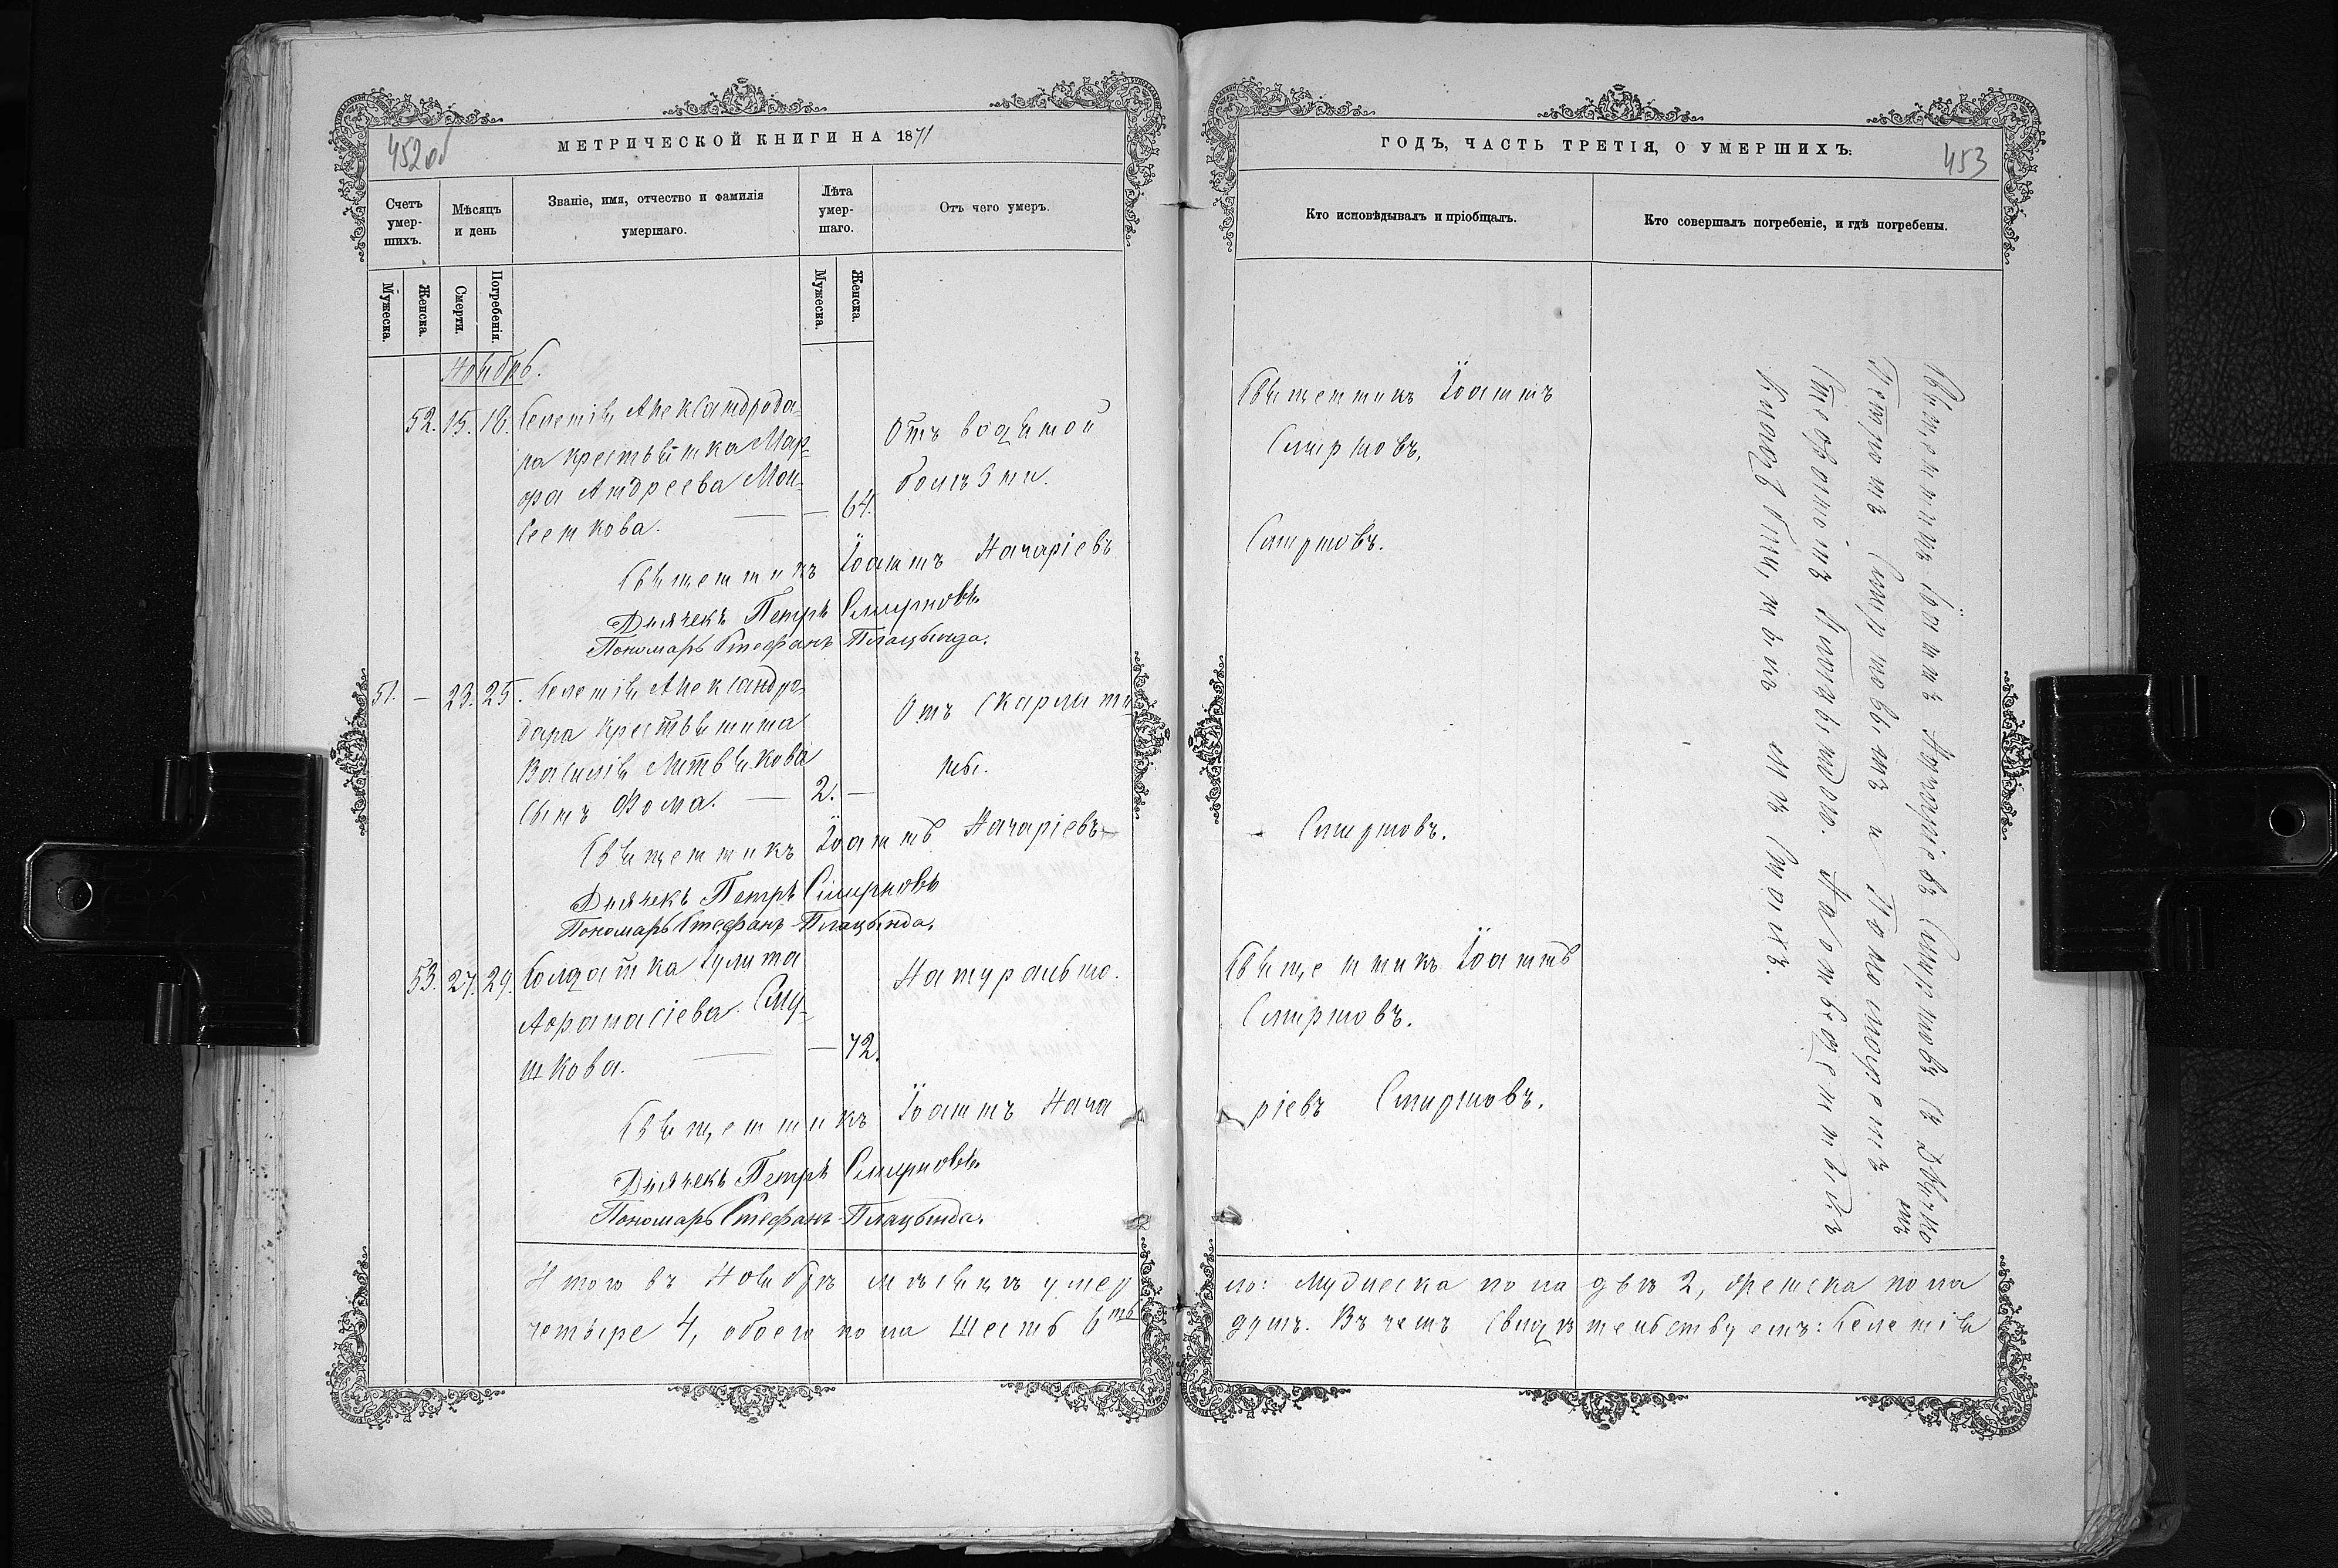 452об
МЕТРИЧЕСКОЙ КНИГИ НА 1871
Счетъ умер-шихъ.
Мѣсяцъ и день
Званіе, имя, отчество и фамилія умершаго.
Лѣта умер-шаго.
Отъ чего умеръ.
Мужеска.
Женска.
Смерти.
Погребенія.
Мужеска.
Женска.
Ноябрь.
52. 15. 16. Селенія Александрода-
ра крестьянка Мар-
фа Андреева Мои-
сеенкова. — — 64.
Отъ водяной
болѣзни.
Священникъ Іоаннъ Назаріевъ
Дьячекъ Петръ Смирновъ
Пономарь Стефанъ Плацында.
51. — 23. 25. Селенія Александро-
дара крестьянина
Василія Литвякова
сынъ Фома. — 2. —
Отъ скарлати
ны.
Священникъ Іоаннъ Назаріевъ
Дьячекъ Петръ Смирновъ
Пономарь Стефанъ Плацында.
53. 27. 29. Солдатка Іулита
Афанасіева
шкова. — — 72.
Натурально.
Священникъ Іоаннъ Наза
Дьячекъ Петръ Смирновъ
Пономарь Стефанъ Плацында.
Итого въ Ноябрѣ мѣсяцѣ умер
четыре 4, обоего пола шесть 6ть
ГОДЪ, ЧАСТЬ ТРЕТІЯ, О УМЕРШИХЪ.
453
Кто исповѣдывалъ и пріобщалъ.
Кто совершалъ погребеніе, и гдѣ погребены.
Священникъ Іоаннъ
Смирновъ.
Смирновъ.
Смирновъ.
Священникъ Іоаннъ
Смирновъ.
ріевъ Смирновъ.
Священникъ Іоаннъ Назаріевъ Смирновъ съ дьячко
мъ
Петромъ Смирновымъ и Пономаремъ
Стефаномъ Плацындою. На
кладбищѣ
ло: мужеска пола двѣ 2, женска пола
душъ. Въ чемъ свидѣтельствуемъ: Селенія